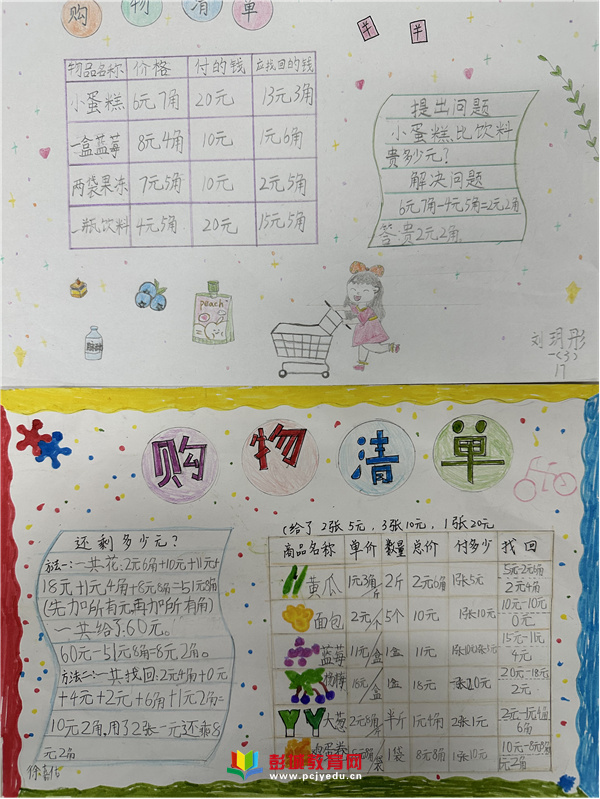 购 物 清 单
物品名称 价格 付的钱 应找回的钱
小蛋糕 6元7角 20元 13元3角
一盒蓝莓 8元4角 10元 1元6角
两袋果冻 7元5角 10元 2元5角
一瓶饮料 4元5角 20元 15元5角
提出问题
小蛋糕比饮料
贵多少元？
解决问题
6元7角-4元5角=2元2角
答:贵2元2角。
peach
刘玥彤
一(3)
17
购 物 清 单
还剩多少元？
方法一:一共花:2元6角+10元+11元+
18元+1元4角+8元8角=51元8角
(先加所有元再加所有角)
一共给了60元。
60元-51元8角=8元2角。
方法二:一共找回:2元4角+0元
+4元+2元+6角+1元2角=
10元2角,用了2张一元还剩8
元2角
(给了2张5元，3张10元，1张20元
商品名称 单价 数量 总价 付多少 找回
黄瓜 1元3角/斤 2斤 2元6角 1张5元 5元-2元6角
2元4角
面包 2元/个 5个 10元 1张10元 10元-10元
0元
蓝莓 11元/盒 1盒 11元 15元-11元
4元
杨梅 18元/盒 1盒 18元 20元 20元-18元
2元
大葱 2元8角/斤 半斤 1元4角 2张1元 2元-1元4角
6角
鸡蛋卷 8角/袋 1袋 8元8角 1张10元 10元-8元8角
1元2角
彭城教育网
www.pcjyedu.cn